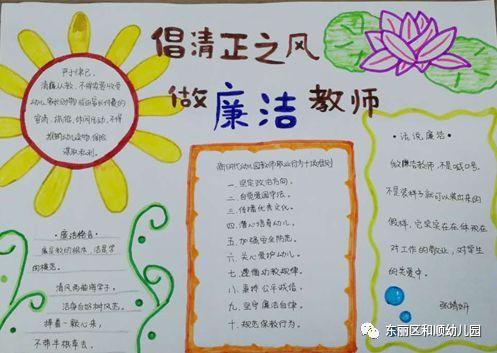 倡清正之风
做廉洁教师
严于律己，
清廉从教，不得索要、收受
幼儿家长财物或参加家长付费的
宴请、旅游、休闲活动，不得
推销幼儿读物、保险
谋取私利。
新时代幼儿园教师职业行为十项准则
一、坚定政治方向。
二、自觉爱国守法。
三、传播优秀文化。
四、潜心培育幼儿。
五、加强安全防范。
六、关心爱护幼儿。
七、遵循幼教规律。
八、秉持公平诚信。
九、坚守廉洁自律。
十、规范保教行为。
·话说廉洁·
做廉洁教师，不是喊口号，
不是装样子就可以装出来的
假样，它实实在在体现在
对工作的敬业，对学生
的关爱中。
·廉洁格言·
廉是教的根本，洁是学
的模范。
清风两袖诲学子，
洁每白好树风范。
捧着一颗心来，
不带半根草去。
东丽区和顺幼儿园